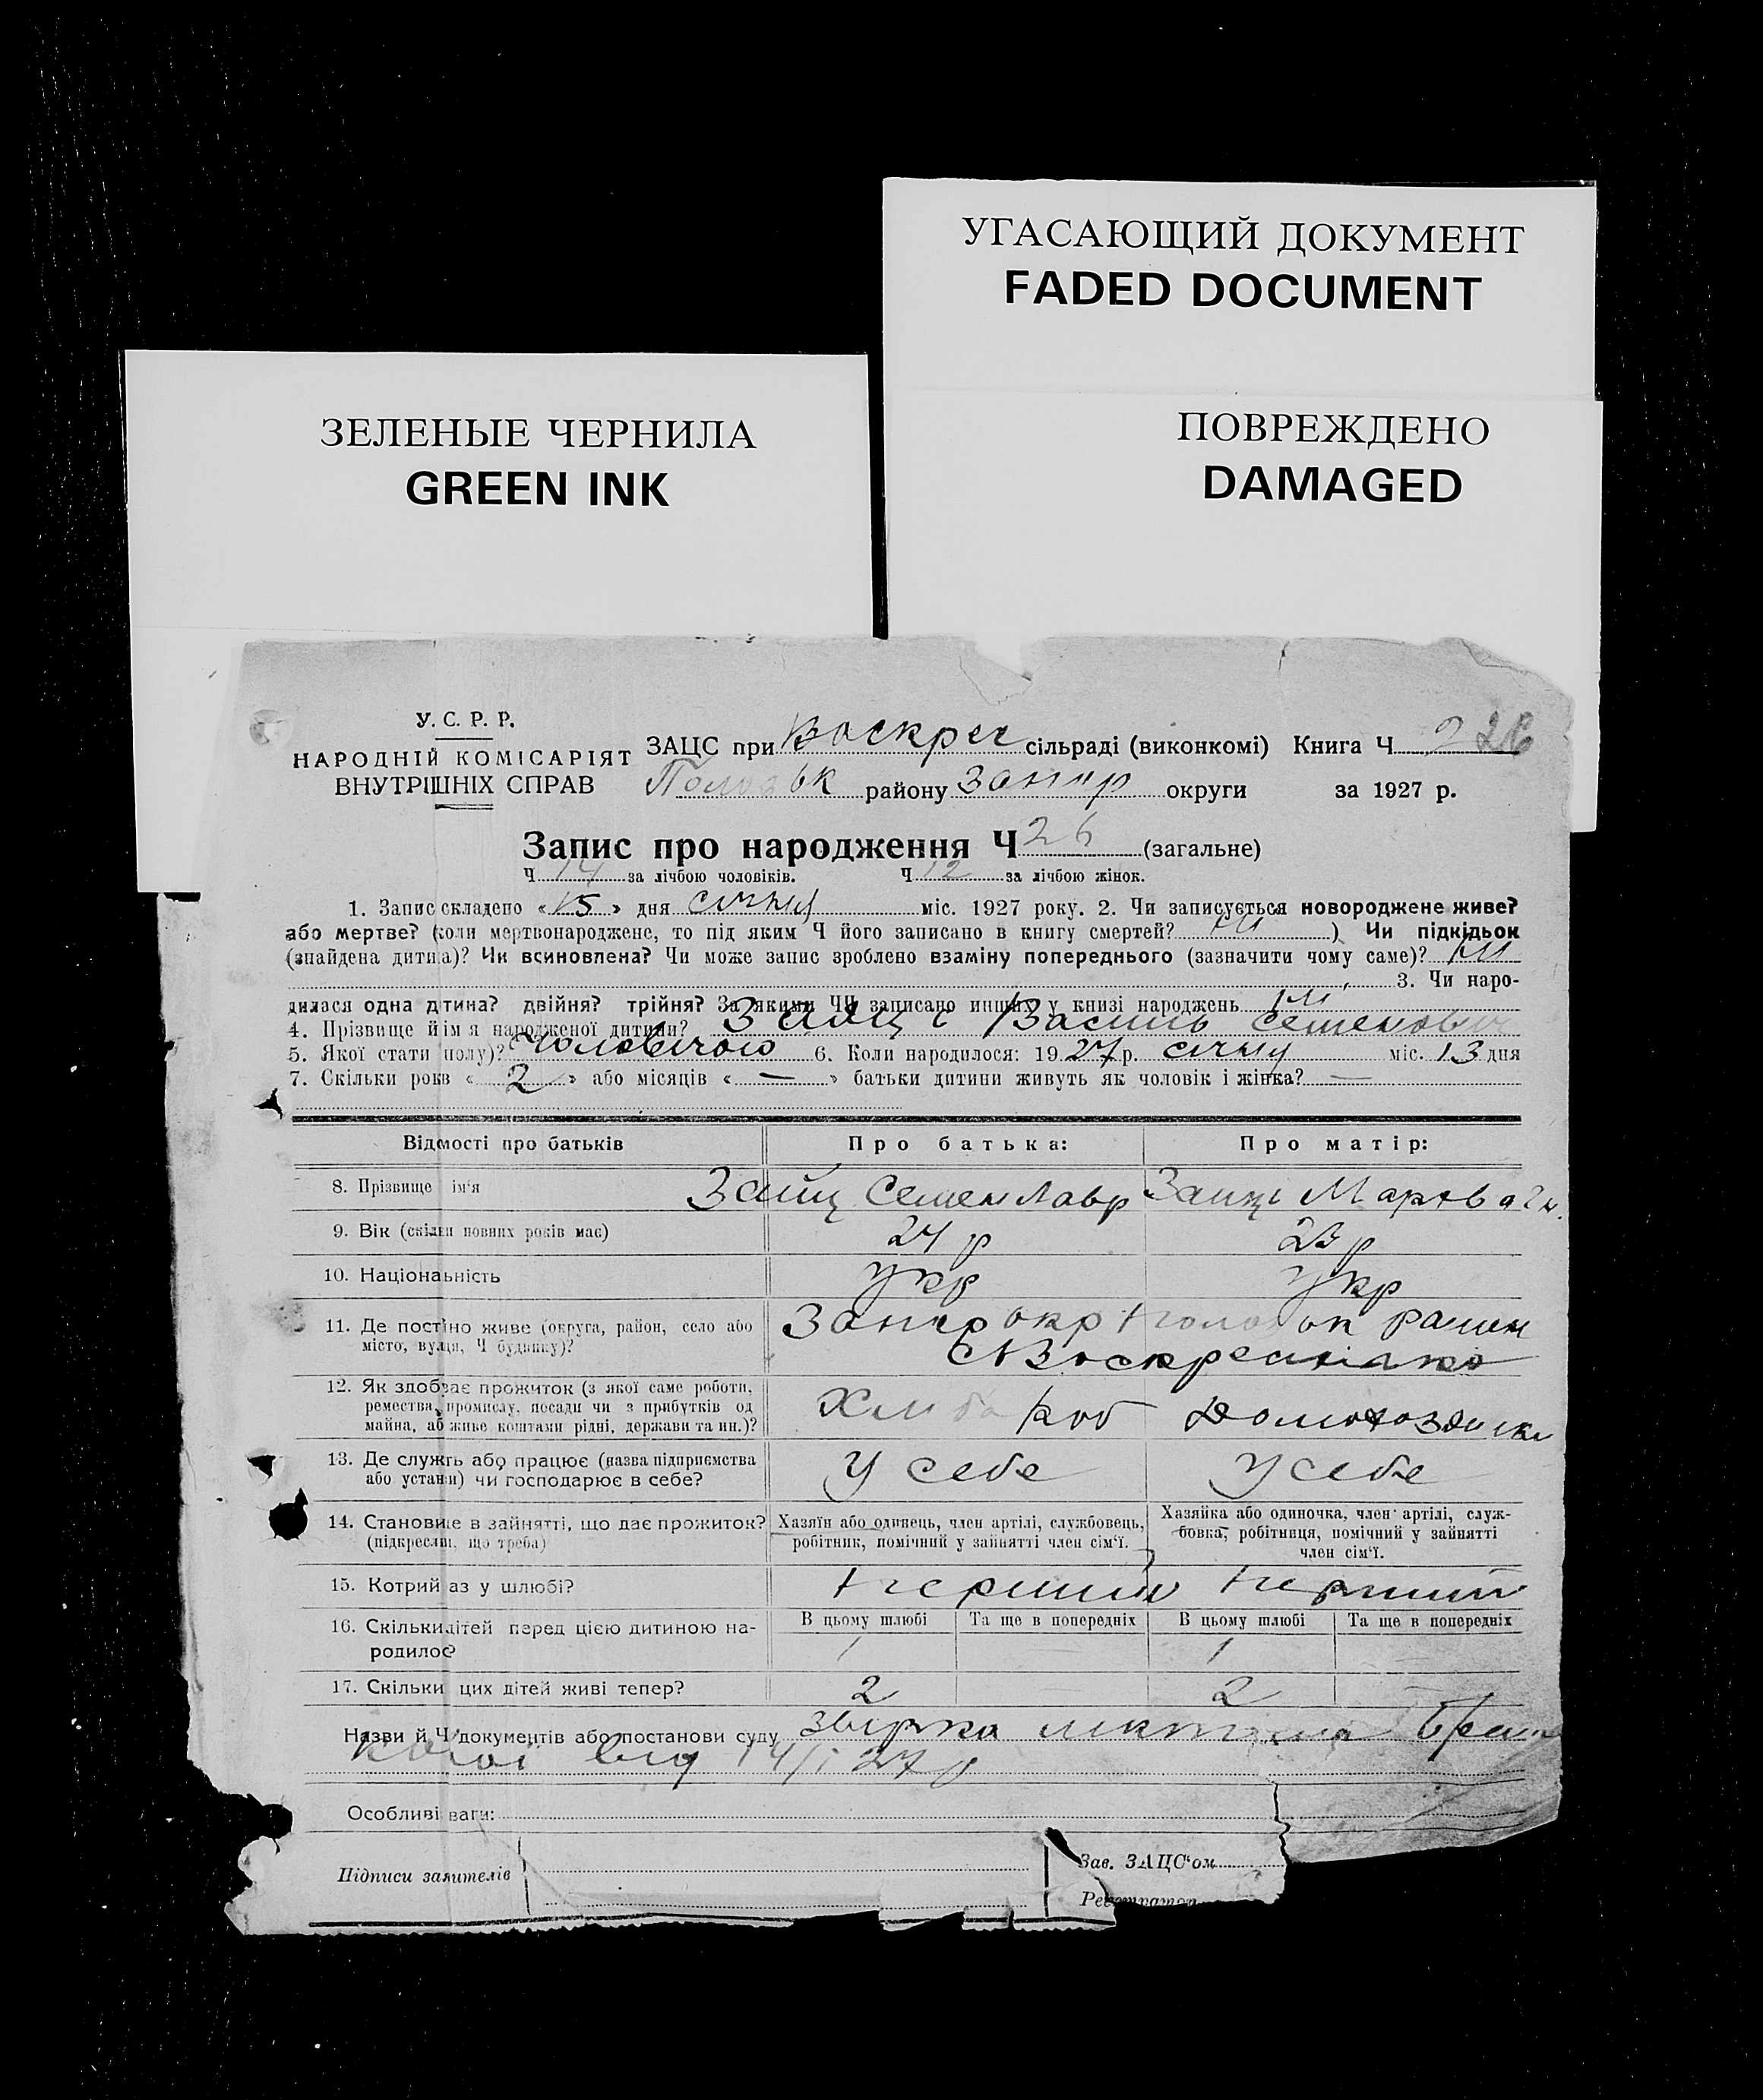 УГАСАЮЩИЙ ДОКУМЕНТ
FADED DOCUMENT
ЗЕЛЕНЫЕ ЧЕРНИЛА
GREEN INK
ПОВРЕЖДЕНО
DAMAGED
У. С. Р. Р.
НАРОДНІЙ КОМІСАРІЯТ
ВНУТРІШНІХ СПРАВ
ЗАЦС при Воскрес сільраді (виконкомі) Книга Ч
району Запор округи за 1927 р.
Запис про народження Ч 26 (загальне)
Ч 14 за лічбою чоловіків. Ч 12 за лічбою жінок.
1. Запис складено «15» дня січня міс. 1927 року. 2. Чи записується новороджене живе?
або мертве? (коли мертвонароджене, то під яким Ч його записано в книгу смертей? ні) Чи підкідьок
(знайдена дитина)? Чи всиновлена? Чи може запис зроблено взаміну попереднього (зазначити чому саме)? ні
3. Чи наро-
дилася одна дтина? двійня? трійня? За якими ЧЧ записано инших у книзі народжень ні
4. Прізвище й ім я народженої дитини? Василь Семенович
5. Якої стати полу)? Чоловічою 6. Коли народилося: 1927 р. січня міс. 13 дня
7. Скільки рокв «2» або місяців «—» батьки дитини живуть як чоловік і жінка? —
Відмості про батьків
Про батька:
Про матір:
8. Прізвище ім'я Заяц Семен Лавр
9. Вік (скільи повних років має) 24 р 23 р
10. Націонаьність укр укр
11. Де постіно живе (округа, район, село або
місто, вулця, Ч будинку)?
Запор окр
12. Як здобуває прожиток (з якої саме роботи,
ремества, промислу, посади чи з прибутків од
майна, або живе коштами рідні, держави та ин.)?
13. Де служть або працює (назва підприємства
або устани) чи господарює в себе?
У себе У себе
14. Становище в зайнятті, що дає прожиток?
(підкресли, що треба)
Хазяїн або одинець, член артілі, службовець,
робітник, помічний у зайнятті член сім'ї.
Хазяйка або одиночка, член артілі, служ-
бовка, робітниця, помічний у зайнятті
член сім'ї.
15. Котрий аз у шлюбі? перший перший
16. Скільки дітей перед цією дитиною на-
родилос?
В цьому шлюбі Та ще в попередніх В цьому шлюбі Та ще в попередніх
1 1
17. Скільки цих дітей живі тепер? 2 2
Назви й Ч документів або постанови суду
від 14/I 27 р
Особливі ваги:
Підписи заявителів
Зав. ЗАЦС'ом